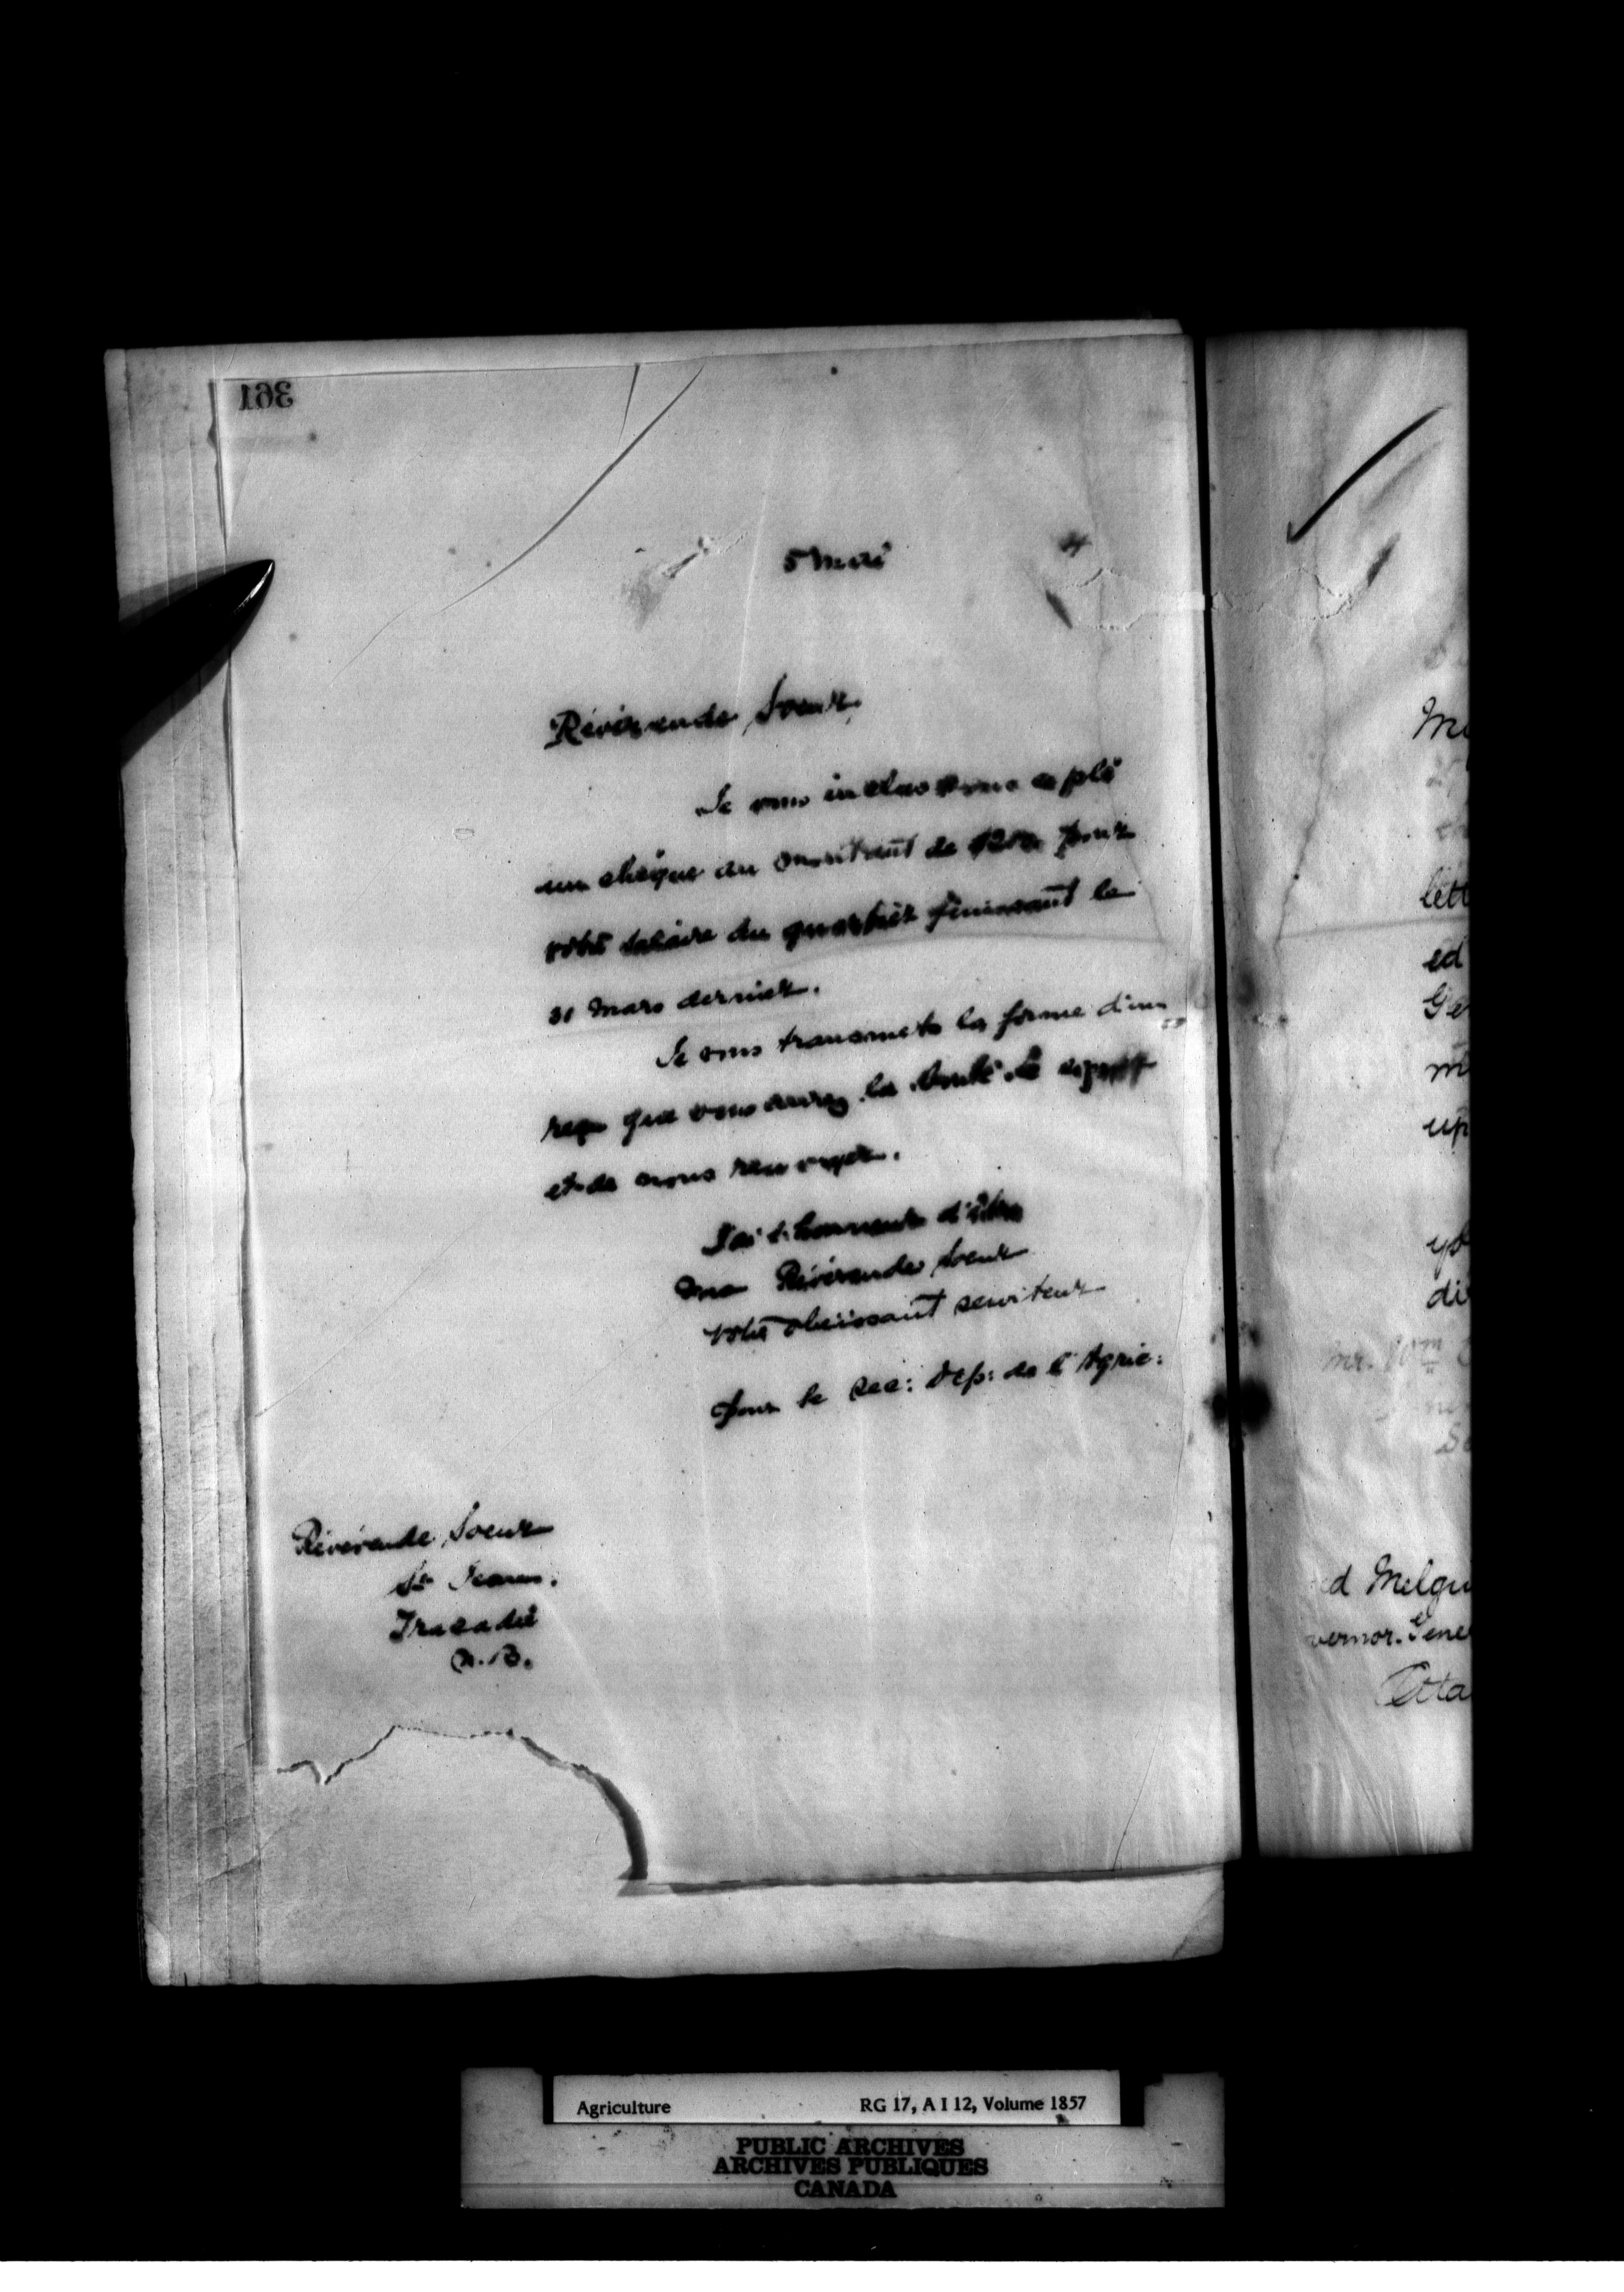 361
5 Mai 4
Révérende Soeur,
Je vous inclus sous ce pli
un chèque au montant de pour
votre salaire du quartier finissant le
31 Mars dernier.
Je vous transmets la forme d'un
reçu que vous aurez la bonté de signer
et de nous renvoyer.
J'ai l'honneur d'être
Ma Révérende Soeur
Votre obeissant serviteur
Pour le Sec: Dep: de l'Agric:
Révérende Soeur
St Jean.
Tracadie
N.B.
Me
lett
ed
Ge
m
up
yo
di
Mr. Wm
ed Melgu
vernor. Gene
Otta
Agriculture RG 17, A I 12, Volume 1857
PUBLIC ARCHIVES
ARCHIVES PUBLIQUES
CANADA